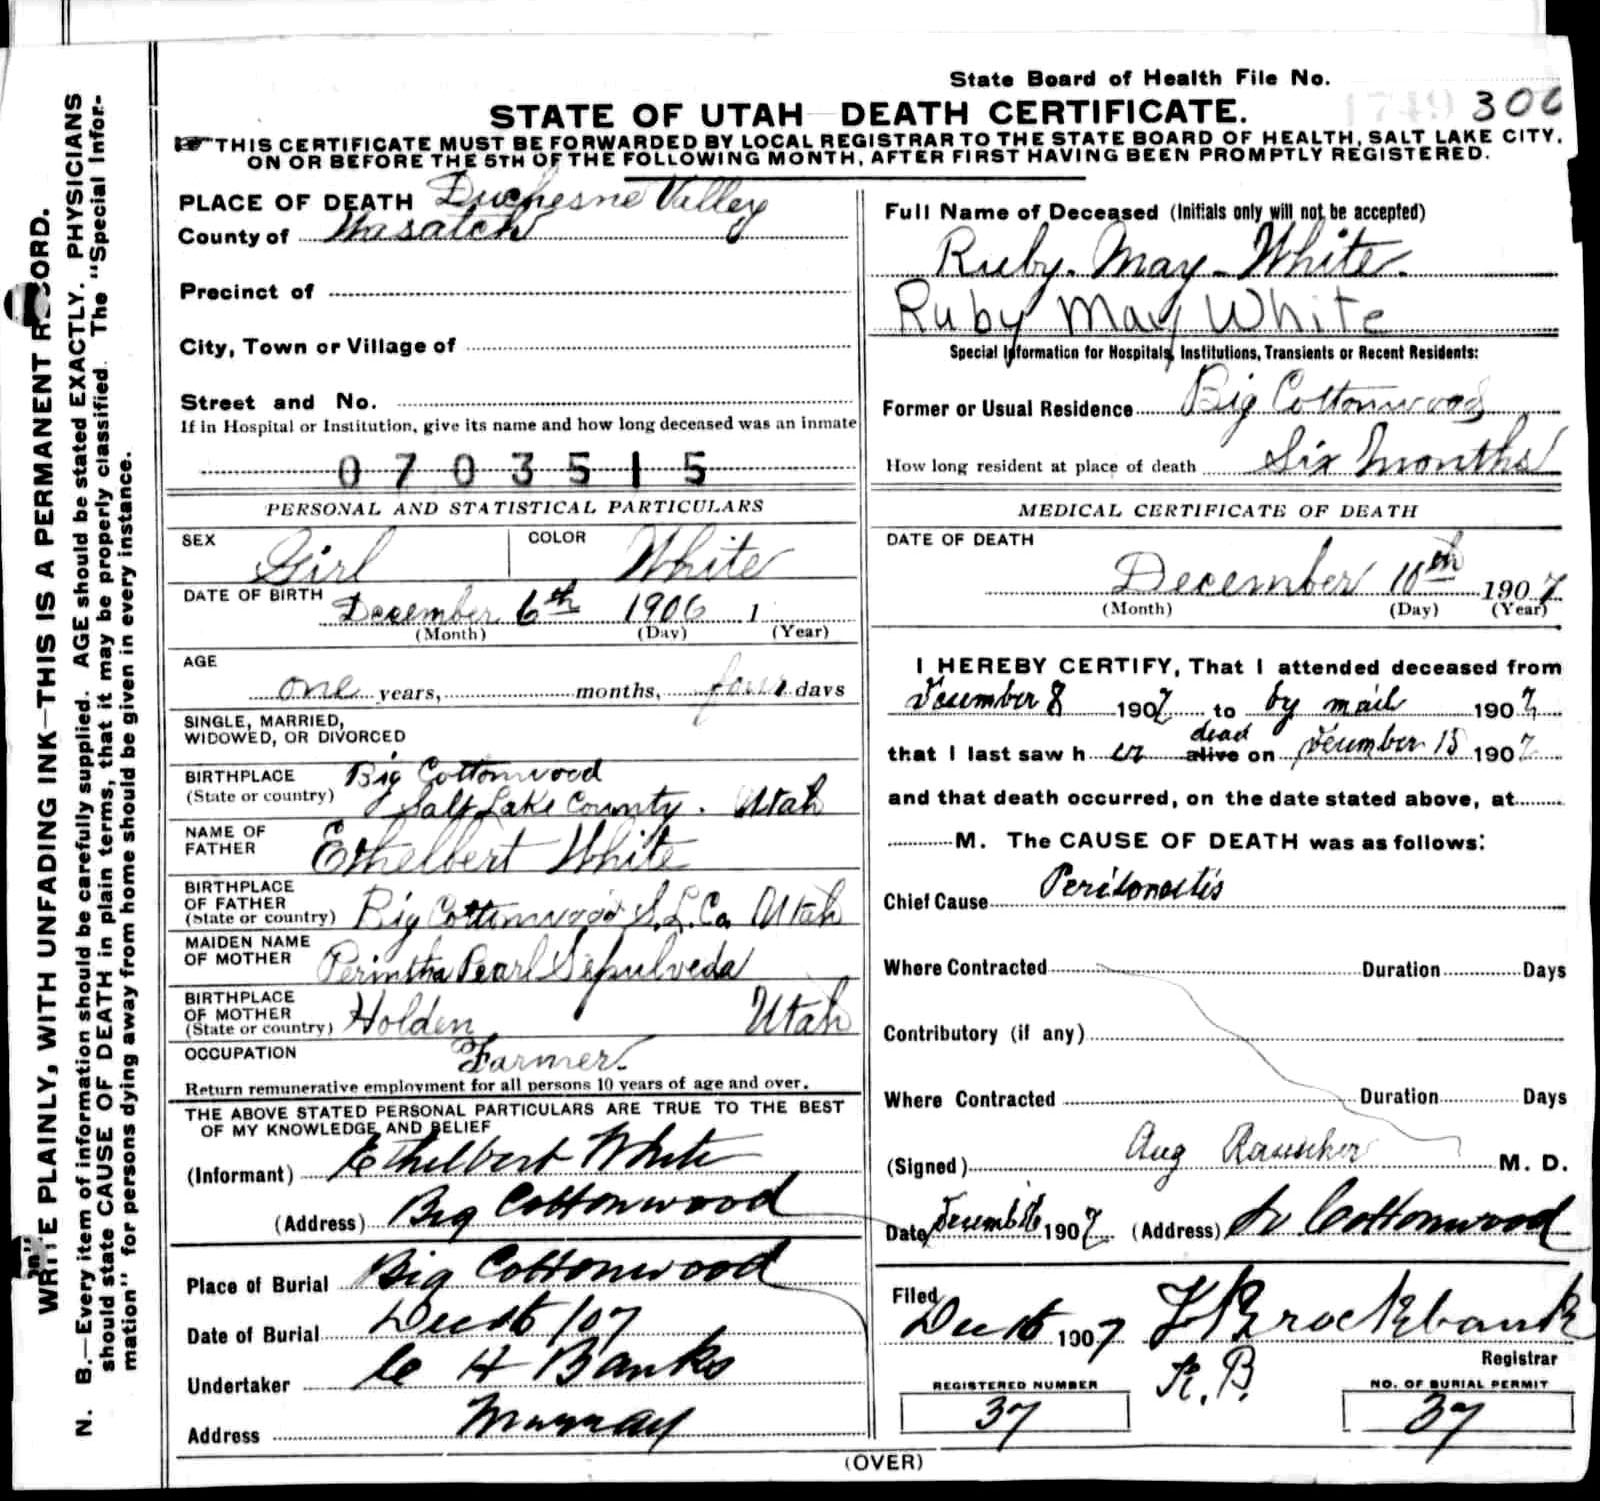 State Board of Health File No.
1749 300
STATE OF UTAH DEATH CERTIFICATE.
THIS CERTIFICATE MUST BE FORWARDED BY LOCAL REGISTRAR TO THE STATE BOARD OF HEALTH, SALT LAKE CITY,
ON OR BEFORE THE 5TH OF THE FOLLOWING MONTH, AFTER FIRST HAVING BEEN PROMPTLY REGISTERED.
WRITE PLAINLY, WITH UNFADING INK—THIS IS A PERMANENT RECORD.
N. B.—Every item of information should be carefully supplied. AGE should be stated EXACTLY. PHYSICIANS
should state CAUSE OF DEATH in plain terms, that it may be properly classified. The "Special Infor-
mation" for persons dying away from home should be given in every instance.
PLACE OF DEATH Duchesne Valley
County of Wasatch
Precinct of
City, Town or Village of
Street and No.
If in Hospital or Institution, give its name and how long deceased was an inmate
0703515
PERSONAL AND STATISTICAL PARTICULARS
SEX Girl COLOR White
DATE OF BIRTH December 6th 1906 1
(Month) (Day) (Year)
AGE
one years, months, four days
SINGLE, MARRIED,
WIDOWED, OR DIVORCED
BIRTHPLACE Big Cottonwood
(State or country) Salt Lake County. Utah
NAME OF
FATHER Ethelbert White
BIRTHPLACE
OF FATHER
(State or country) Big Cottonwood S.L.Co. Utah
MAIDEN NAME
OF MOTHER Perintha Pearl Sepulveda
BIRTHPLACE
OF MOTHER
(State or country) Holden Utah
OCCUPATION Farmer.
Return remunerative employment for all persons 10 years of age and over.
THE ABOVE STATED PERSONAL PARTICULARS ARE TRUE TO THE BEST
OF MY KNOWLEDGE AND BELIEF
(Informant) Ethelbert White
(Address) Big Cottonwood
Place of Burial Big Cottonwood
Date of Burial Dec 16/07
Undertaker C H Banks
Address Murray
Full Name of Deceased (Initials only will not be accepted)
Ruby. May White.
Ruby May White
Special Information for Hospitals, Institutions, Transients or Recent Residents:
Former or Usual Residence Big Cottonwood
How long resident at place of death Six Months
MEDICAL CERTIFICATE OF DEATH
DATE OF DEATH
December 10th 1907
(Month) (Day) (Year)
I HEREBY CERTIFY, That I attended deceased from
December 8 1907 to by mail 1907
dead
that I last saw h er alive on December 15 1907
and that death occurred, on the date stated above, at
M. The CAUSE OF DEATH was as follows:
Chief Cause Peritonitis
Where Contracted Duration Days
Contributory (if any)
Where Contracted Duration Days
(Signed) Aug Rauscher M. D.
Date Decemb 16 1907 (Address) So Cottonwood
Filed Dec 16 1907 F Brockbank
R.B. Registrar
REGISTERED NUMBER NO. OF BURIAL PERMIT
37 37
(OVER)